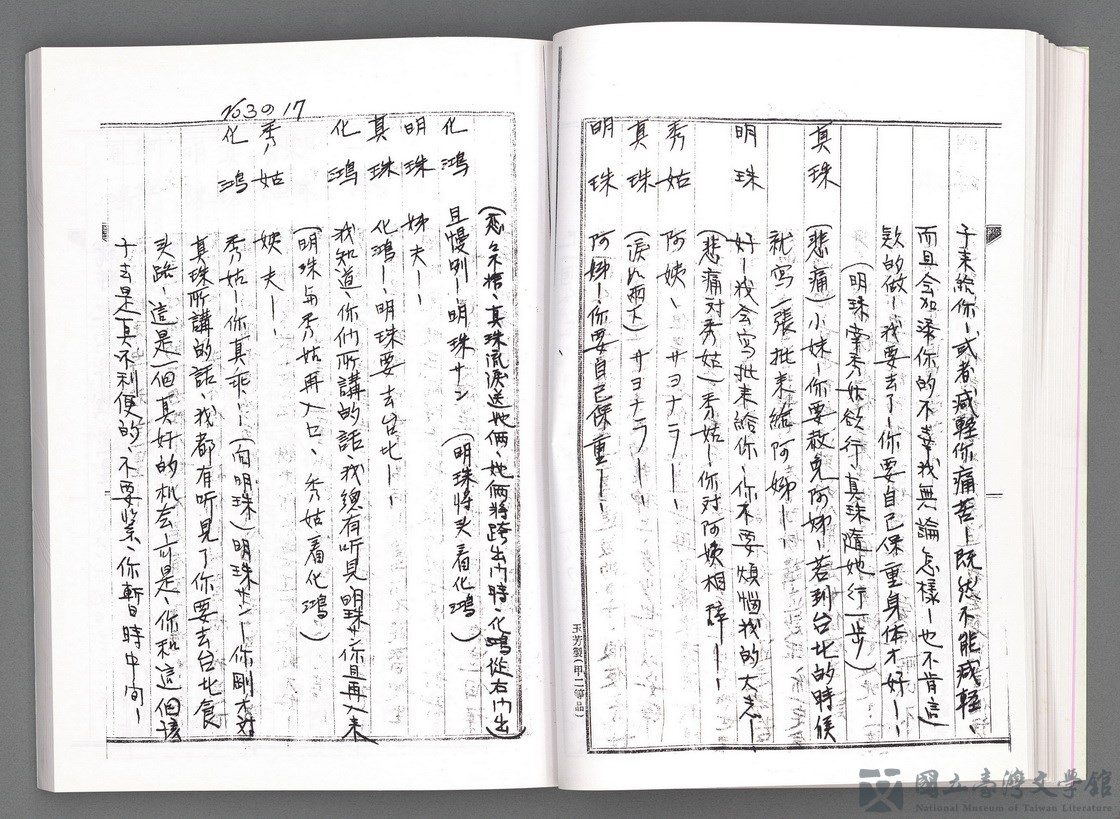 于来給你、或者減輕你痛苦、既然不能減輕、
而且会加添你的不幸我無論怎樣、也不肯這
欵的做、我要去了、你要自己保重身体才好、、
(明珠牽秀姑欲行、真珠隨她行一步)
真珠 (悲痛)小妹、你要赦免阿姊、若到台北的時候
就寫一張批来給阿姊、
明珠 好、我会寫批来給你、你不要煩惱我的大志、
(悲痛对秀姑)秀姑、你对阿姨相辞、、、
秀姑 阿姨、サヨナラ、、、
真珠 (淚如雨下)サヨナラ、、
明珠 阿姊、你要自己保重、、
玉芳製(甲二等品)
(恋〻不捨、真珠流淚送她俩、她俩將跨出门時、化鴻從右门出)
化鴻 且慢咧、明珠サン (明珠將头看化鴻)
明珠 姊夫、、
真珠 化鴻、明珠要去台北、、
化鴻 我知道、你们所講的話、我總有听見、明珠サン你且再入来
(明珠与秀姑再入口、秀姑看化鴻)
秀姑 姨夫、、
化鴻 秀姑、你真乖、、(向明珠)明珠サン、你剛才対
真珠所講的話、我都有听見了你要去台北食
头路、這是一個真好的机会、亦是你和這個孩
子去是真不利便的、不要紧、你暫日時中间、
263017
國立臺灣文學館
National Museum of Taiwan Literature